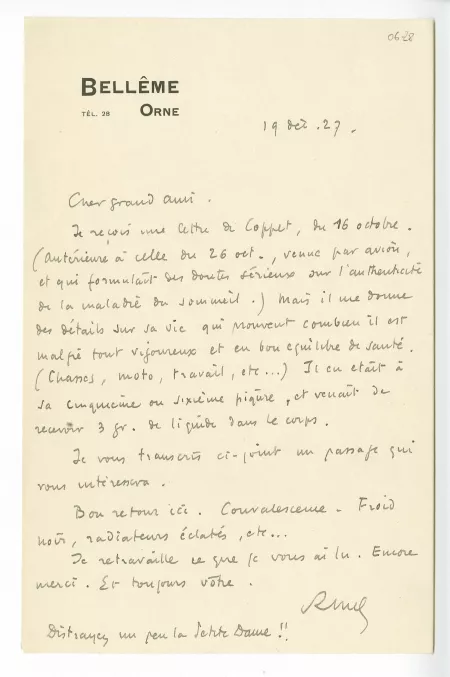 0628
BELLÊME
TÉL. 28 ORNE
19 déc. 27.
Cher grand ami.
Je reçois une lettre de Coppet, du 16 octobre.
(antérieure à celle du 26 oct., venue par avion,
et qui formulait des doutes sérieux sur l'authenticité
de la maladie du sommeil.) Mais il me donne
des détails sur sa vie qui prouvent combien il est
malgré tout vigoureux et en bon équilibre de santé.
(Chasses, moto, travail, etc...) Il en était à
sa cinquième ou sixième piqûre, et venait de
recevoir 3 gr. de liquide dans le corps.
Je vous transcris ci-joint un passage qui
vous intéressera.
Bon retour ici. Convalescence. Froid
noir, radiateurs éclatés, etc...
Je retravaille ce que je vous ai lu. Encore
merci. Et toujours vôtre.
Distrayez un peu la Petite Dame !!